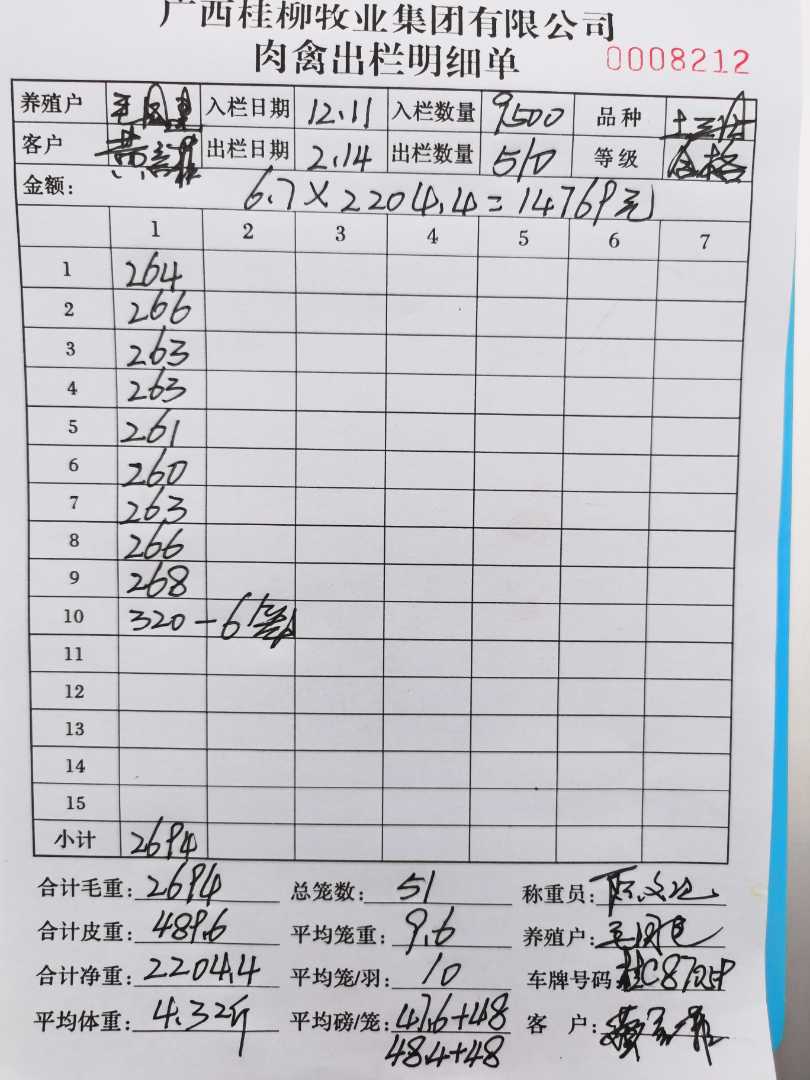 广西桂柳牧业集团有限公司
肉禽出栏明细单 0008212
养殖户 入栏日期 12.11 入栏数量 9500 品种
客户 出栏日期 2.14 出栏数量 510 等级 合格
金额: 6.7×2204.4=14769元
1 2 3 4 5 6 7
1 264
2 266
3 263
4 263
5 261
6 260
7 263
8 266
9 268
10 320-6
11
12
13
14
15
小计 2694
合计毛重: 2694 总笼数: 51 称重员:
合计皮重: 489.6 平均笼重: 9.6 养殖户:
合计净重: 2204.4 平均笼/羽: 10 车牌号码
平均体重: 4.32斤 平均磅/笼: 47.6+48 客 户:
48.4+48